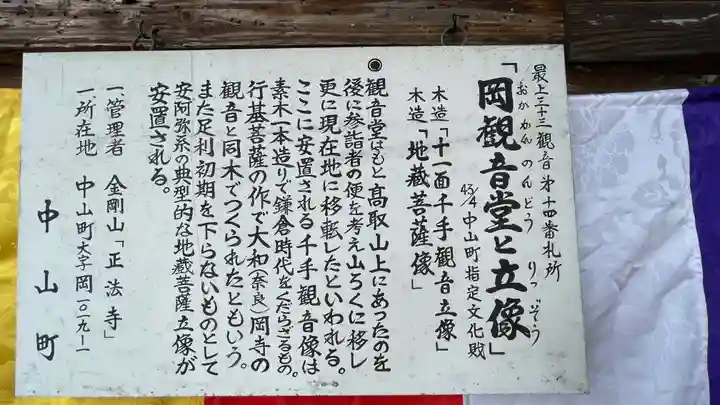 最上三十三観音第十四番札所
「岡観音堂と立像」
おかかんのんどう りつぞう
43/4 中山町指定文化財
木造「十一面千手観音立像」
木造「地蔵菩薩像」
◉観音堂はもと高取山上にあったのを
後に参詣者の便を考え山ろくに移し
更に現在地に移転したといわれる。
ここに安置される千手観音像は
素木一本造りで鎌倉時代をくだらざるもの。
行基菩薩の作で大和(奈良)岡寺の
観音と同木でつくられたともいう。
また足利初期を下らないものとして
安阿弥系の典型的な地蔵菩薩立像が
安置される。
一 管理者 金剛山「正法寺」
一 所在地 中山町大字岡一〇一九-一
中山町